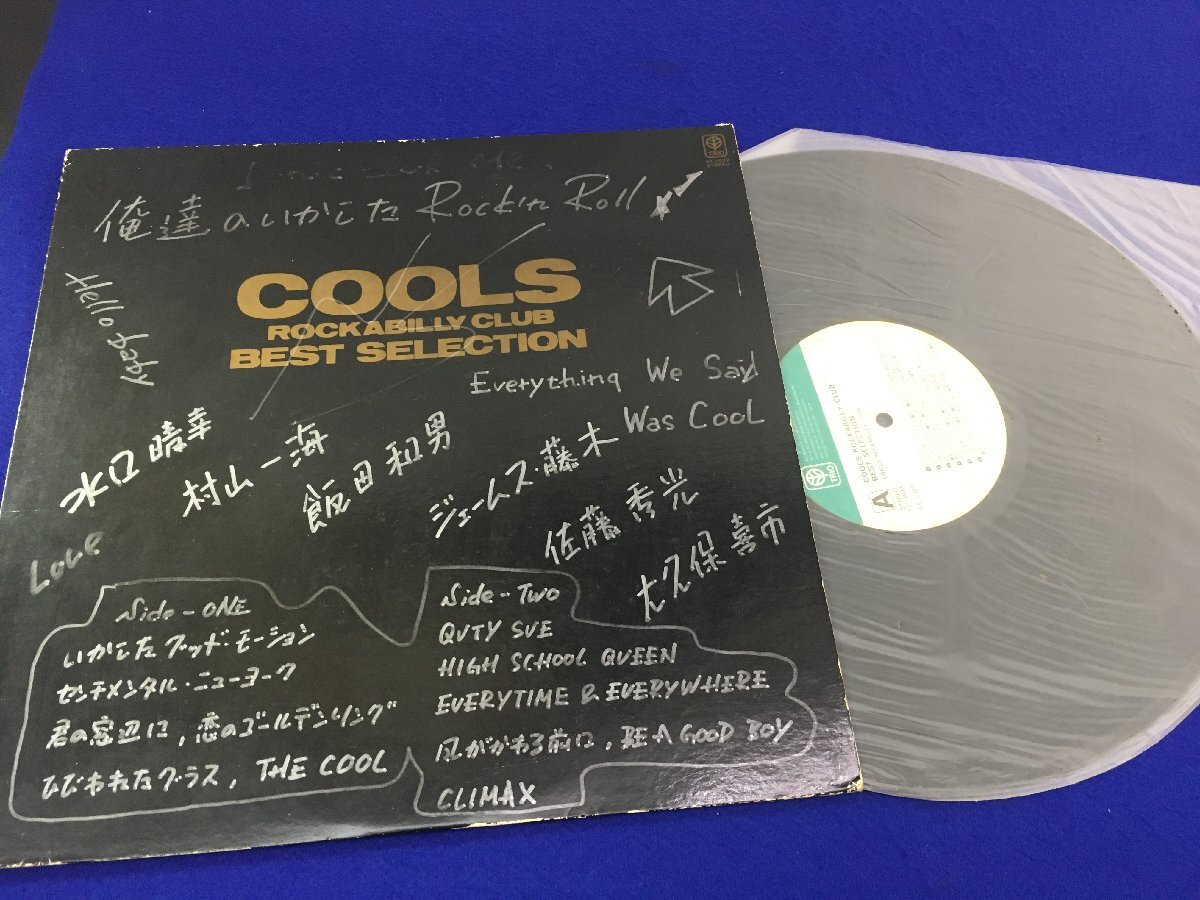 TRIO
STEREO
俺達のいかした Rock'n Roll
COOLS
ROCKABILLY CLUB
BEST SELECTION
Hello baby
Everything We Said
Was Cool
水口晴幸
村山一海
飯田和男
ジェームス・藤木
佐藤秀光
大久保喜市
Love
Side-ONE
いかしたグッド・モーション
センチメンタル・ニューヨーク
君の窓辺に, 恋のゴールデンリング
ひびわれたグラス, THE COOL
Side-TWO
QUTY SUE
HIGH SCHOOL QUEEN
EVERYTIME & EVERYWHERE
風がかわる前に, BE A GOOD BOY
CLIMAX
TRIO
COOLS ROCKABILLY CLUB
BEST SELECTION
A